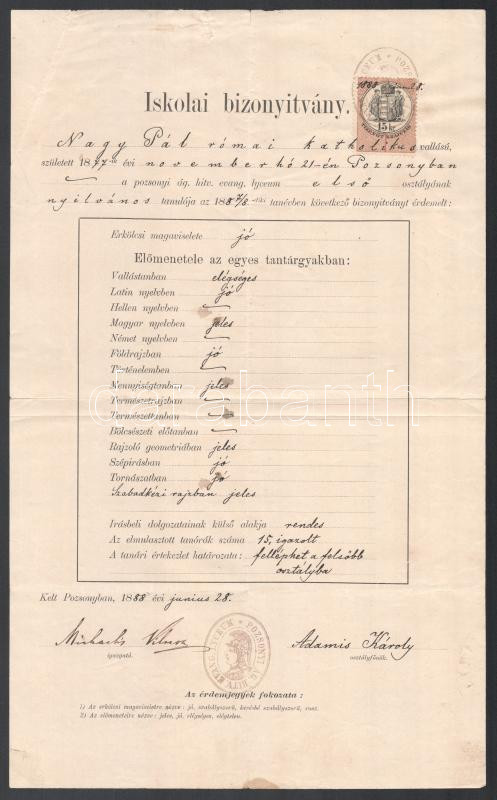 1888 28.
15 kr.
Iskolai bizonyitvány.
Nagy Pál római katholikus vallású,
született 1877-ik évi november hó 21-én Pozsonyban
a pozsonyi ág. hitv. evang. lyceum első osztályának
nyilvános tanulója az 1887/8-iki tanévben következő bizonyitványt érdemelt:
Erkölcsi magaviselete jó
Előmenetele az egyes tantárgyakban:
Vallástanban elégséges
Latin nyelvben jó
Hellen nyelvben
Magyar nyelvben jeles
Német nyelvben
Földrajzban jó
Történelemben
Mennyiségtanban jeles
Természetrajzban
Természettanban
Bölcsészeti előtanban
Rajzoló geometriában jeles
Szépirásban jó
Tornászatban jó
Szabadkézi rajzban jeles
Irásbeli dolgozatainak külső alakja rendes
Az elmulasztott tanórák száma 15, igazolt
A tanári értekezlet határozata: felléphet a felsőbb
osztályba
Kelt Pozsonyban, 1888 évi junius 28.
Michaelis Vilmos
igazgató.
Adamis Károly
osztályfőnök.
POZSONYI ÁG. HITV. EVANG. LYCEUM
Az érdemjegyek fokozata:
1) Az erkölcsi magaviseletre nézve: jó, szabályszerű, kevésbé szabályszerű, rosz.
2) Az előmenetelre nézve: jeles, jó, elégséges, elégtelen.
darabanth